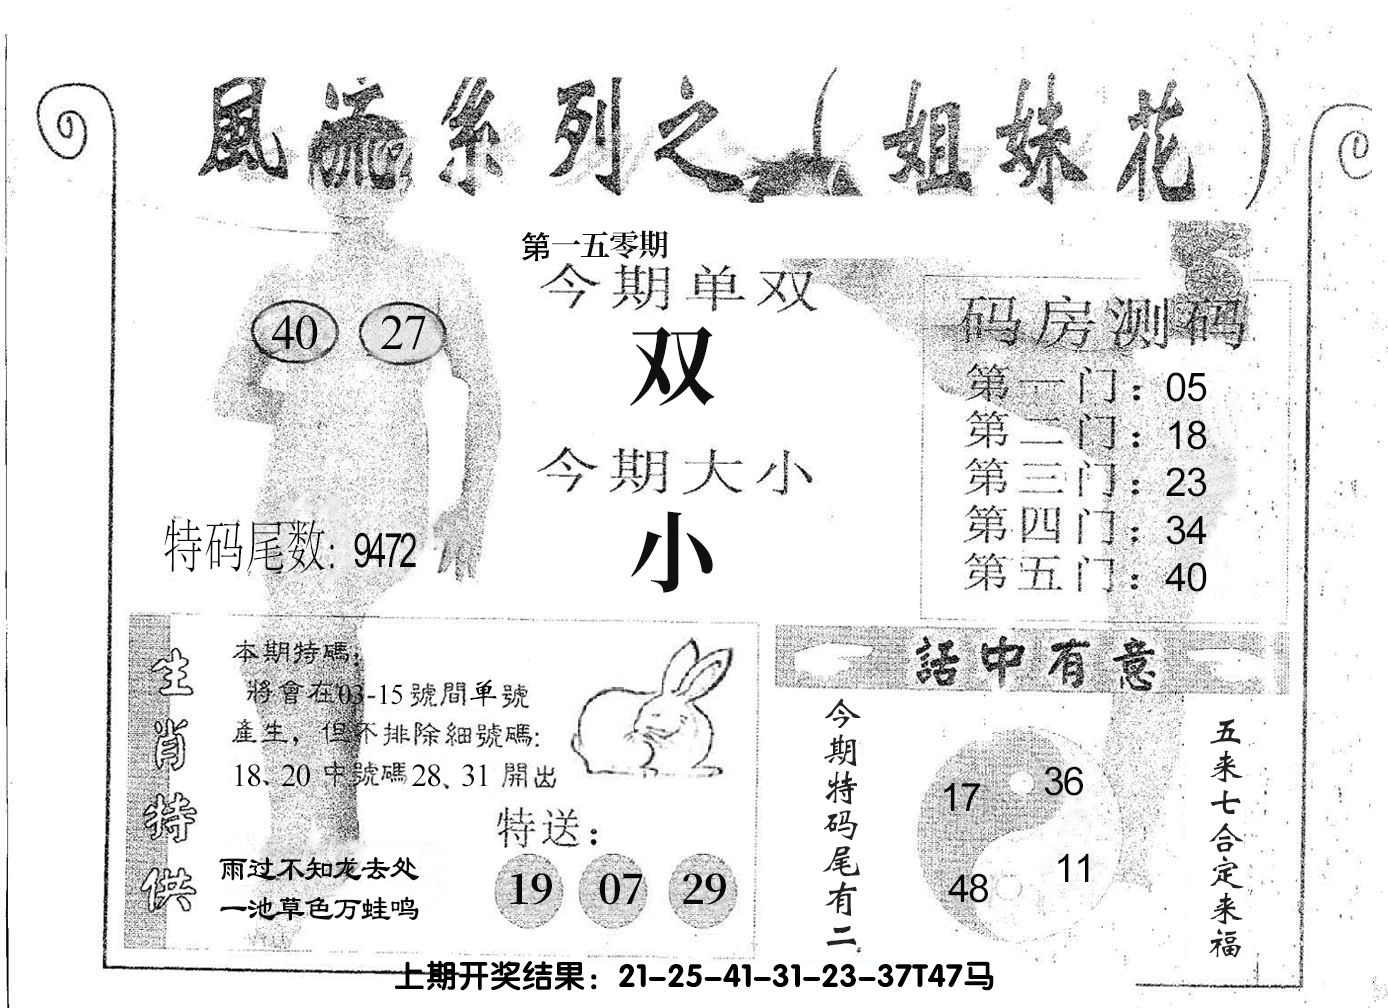 風流系列之（姐妹花）
第一五零期
今期单双
双
今期大小
小
40 27
特码尾数: 9472
码房测码
第一门：05
第二门：18
第三门：23
第四门：34
第五门：40
生肖特供
本期特碼：
將會在03-15號間单號
產生，但不排除細號碼:
18、20 中號碼28、31 開出
特送：
19 07 29
雨过不知龙去处
一池草色万蛙鸣
話中有意
今期特码尾有二
17 36
48 11
五来七合定来福
上期开奖结果：21-25-41-31-23-37T47马